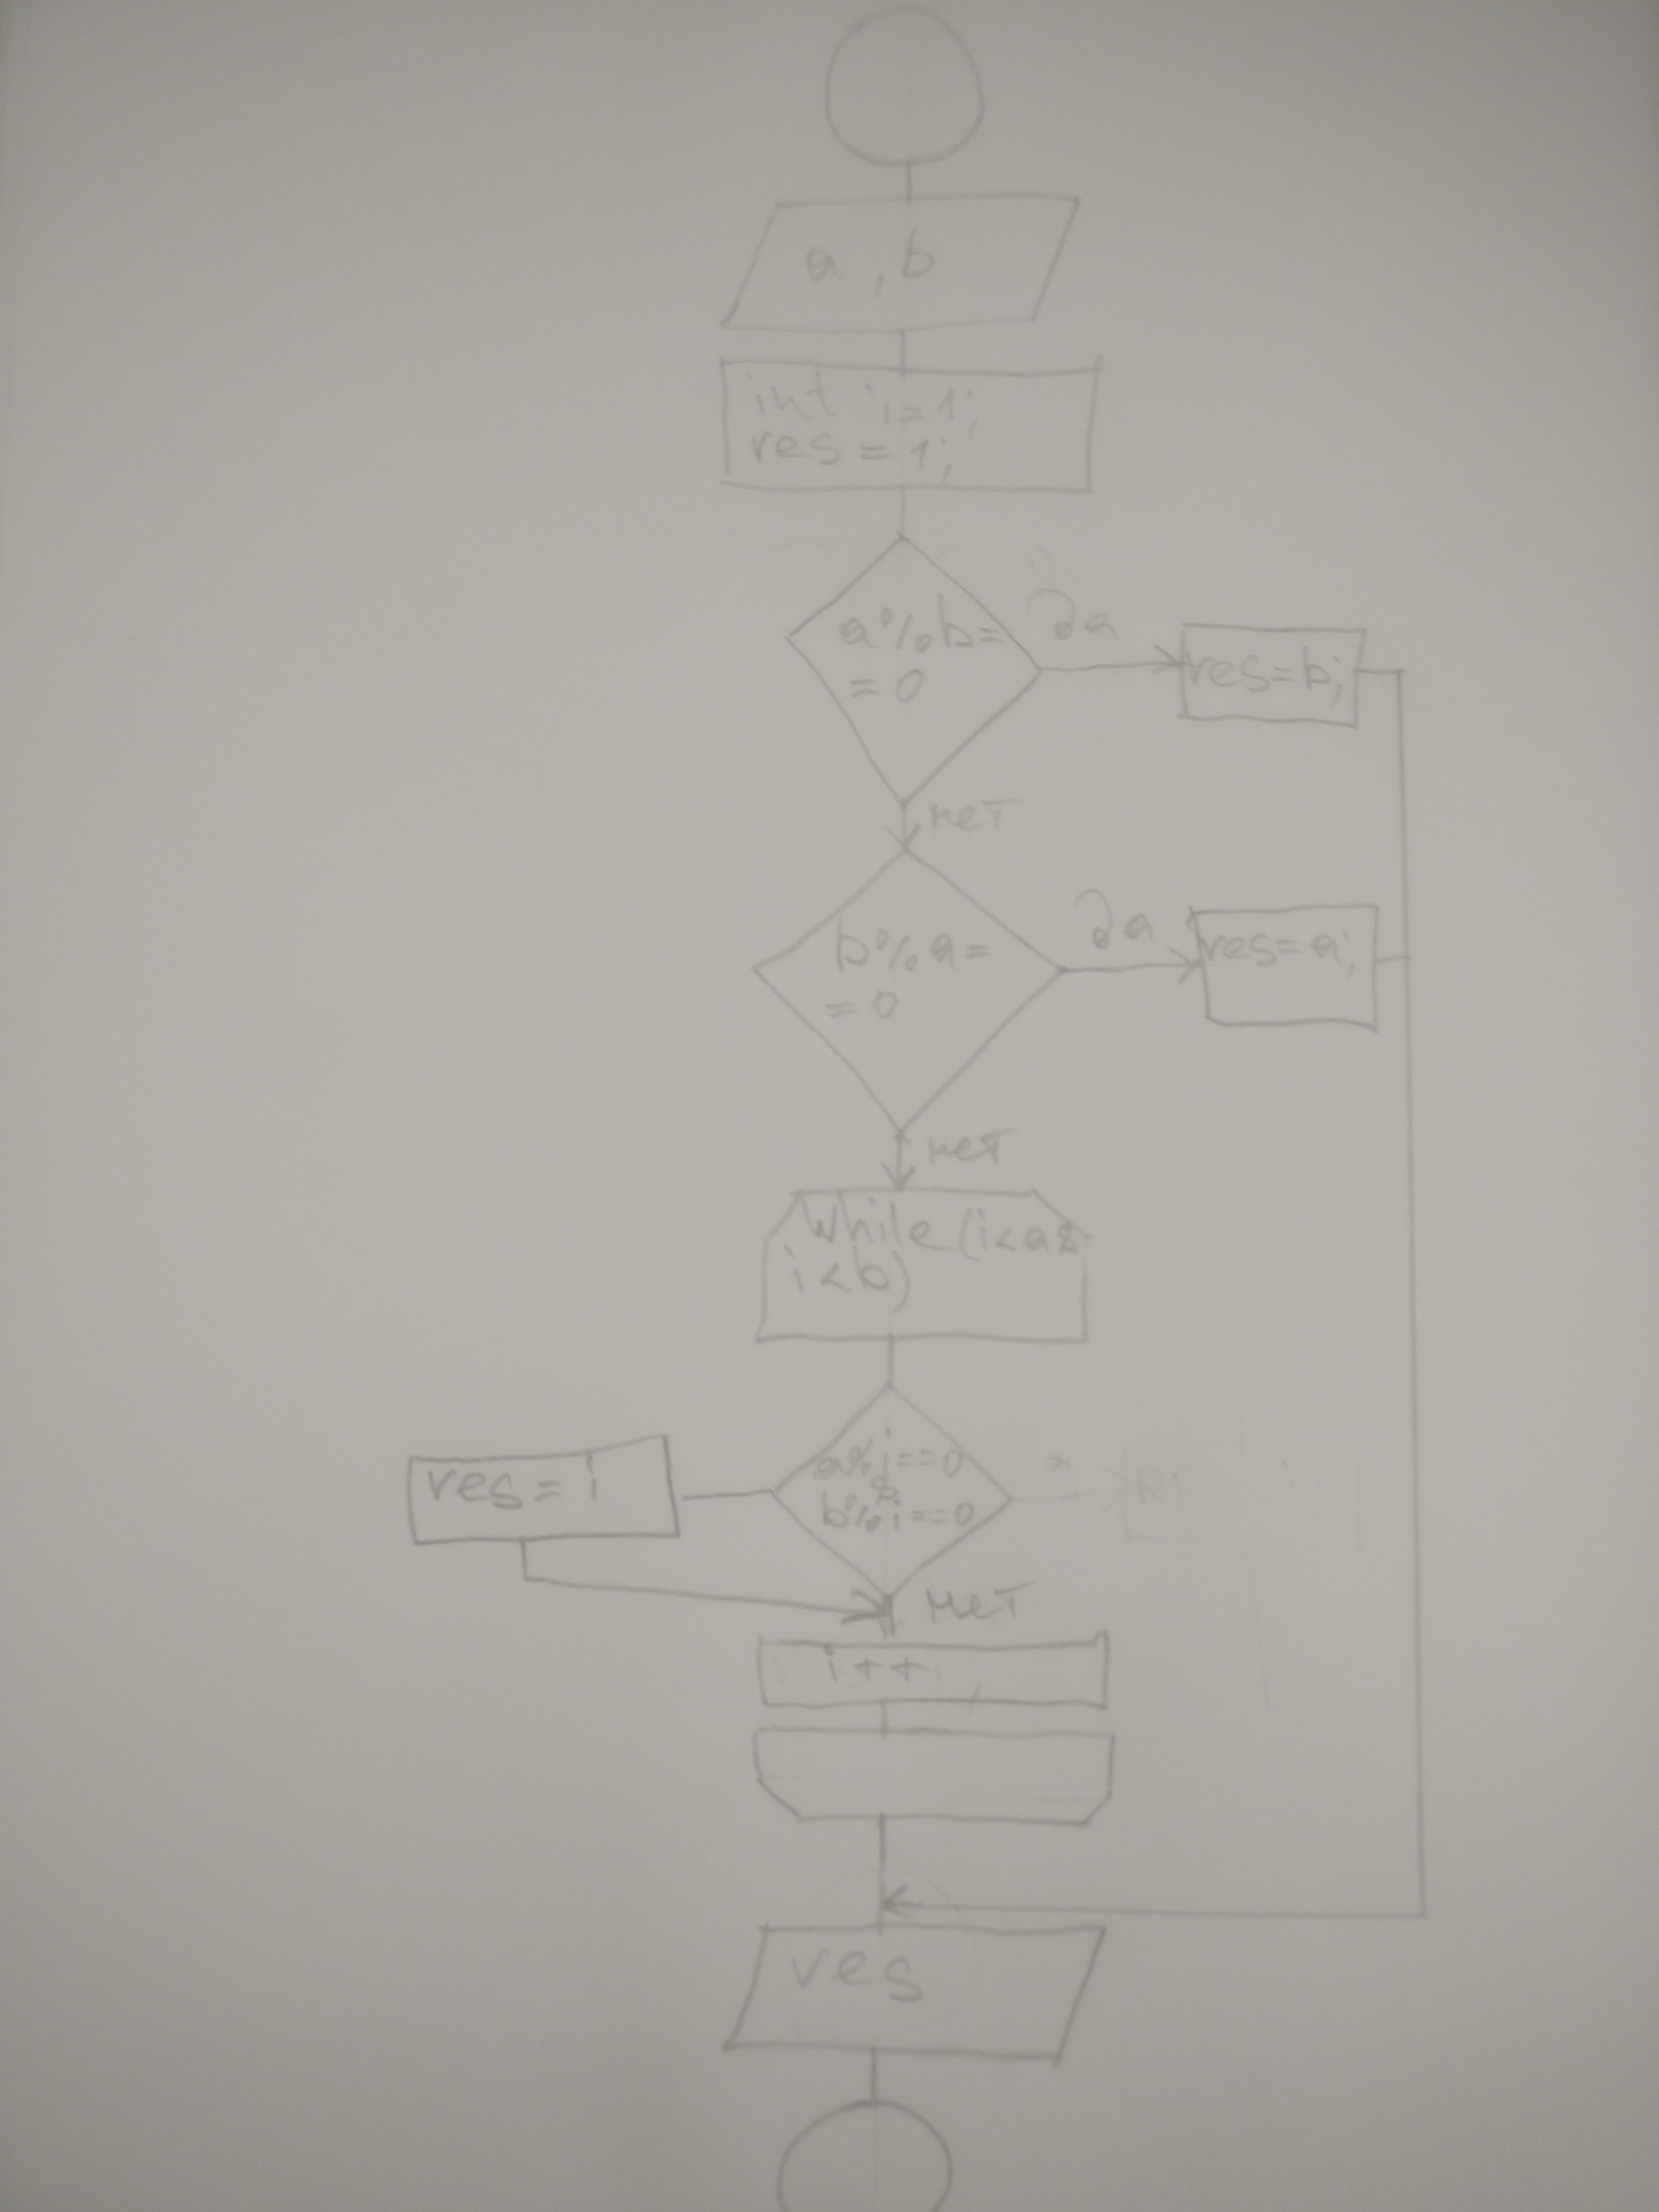 a, b
int i=1;
res = 1;
a%b=
=0
да
res=b;
нет
b%a=
=0
да
res=a;
нет
While (i<a&
i<b)
a%i==0
&
b%i==0
res = i
нет
i++;
res